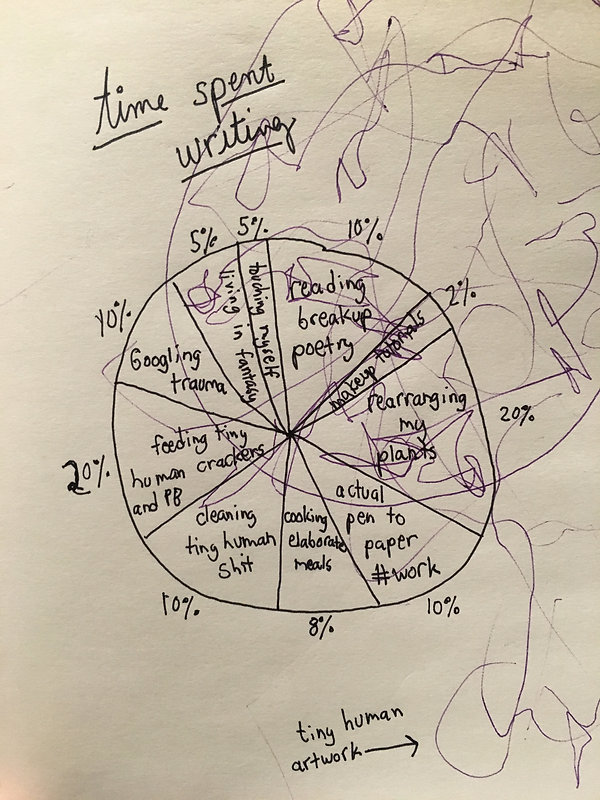 time spent
writing
5%
5%
10%
2%
20%
10%
8%
10%
20%
10%
living in fantasy
touching myself
reading
breakup
poetry
makeup tutorials
rearranging
my
plants
actual
pen to
paper
#work
cooking
elaborate
meals
cleaning
tiny human
shit
feeding tiny
human crackers
and PB
Googling
trauma
tiny human
artwork